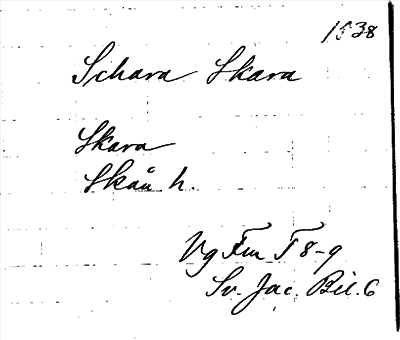 1538
Schara Skara
Skara
Skån h.
Vg Fm I 8-9
Sv. Jac. Bil. 6